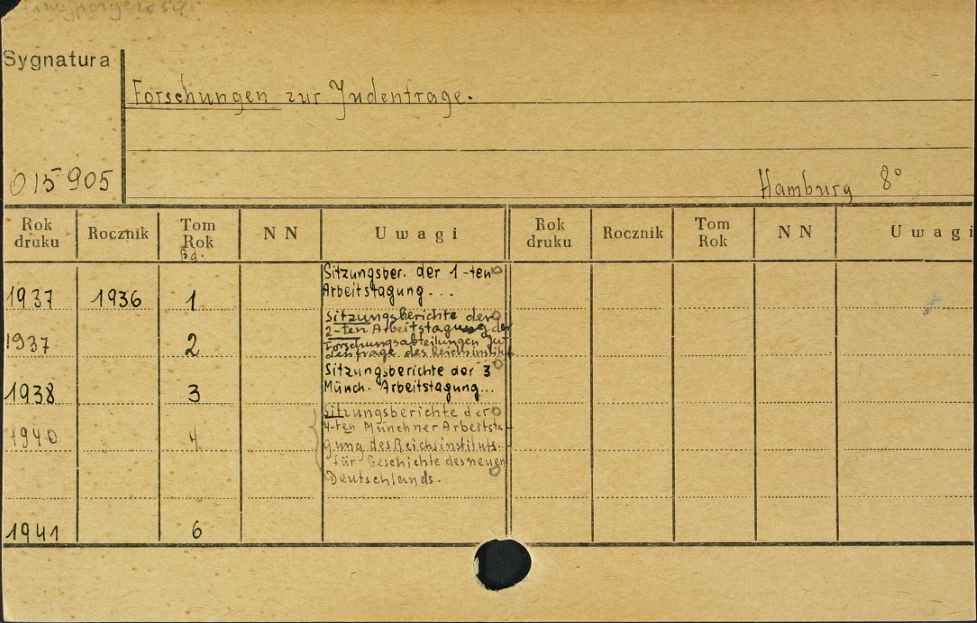 Sygnatura
Forschungen zur Judenfrage.
015905
Hamburg 8°
Rok druku Rocznik Tom Rok Bd. N N Uwagi Rok druku Rocznik Tom Rok N N Uwagi
1937 1936 1 Sitzungsber. der 1-ten
Arbeitstagung...
1937 2 Sitzungsberichte der
2-ten Arbeitstagung der
Forschungsabteilungen Ju-
denfrage des Reichsinstituts
1938 3 Sitzungsberichte der 3
Münch. Arbeitstagung...
1940 4 Sitzungsberichte der
4-ten Münchner Arbeitsta-
gung des Reichsinstituts..
für Geschichte des neuen
Deutschlands.
1941 6